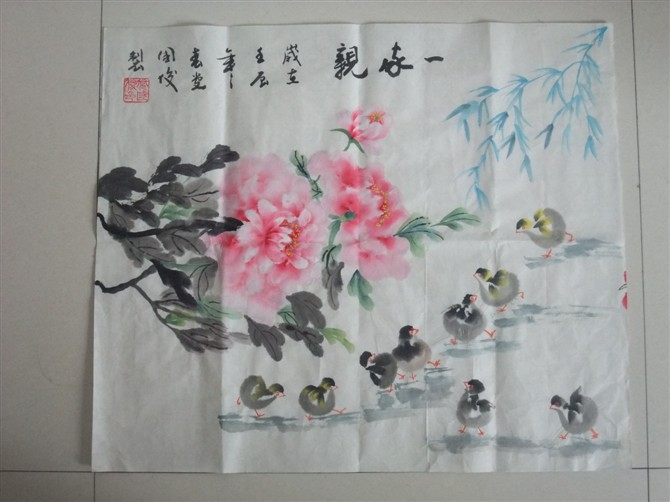 一家親
歲在
壬辰
年
春堂
周俊
製